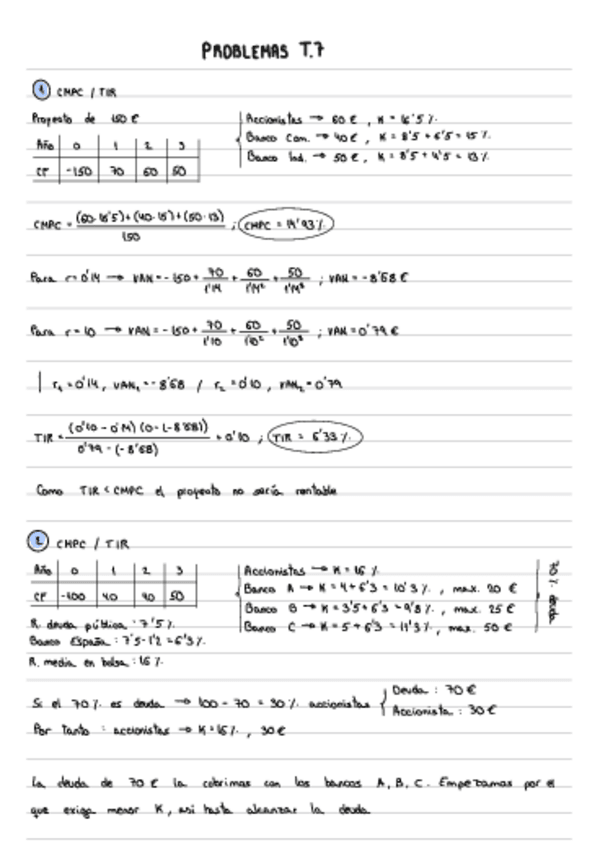 PROBLEMAS T.7
1 CMPC / TIR
Proyecto de 150 €
Accionistas → 60 €, K = 16'5 %.
Banco Com. → 40 €, K = 8'5 + 6'5 = 15 %.
Banco Ind. → 50 €, K = 8'5 + 4'5 = 13 %.
Año 0 1 2 3
CF -150 70 60 50
CMPC = (60·16'5)+(40·15)+(50·13) / 150 ; CMPC = 14'93 %.
Para r=0'14 → VAN = -150 + 70/1'14 + 60/1'14² + 50/1'14³ ; VAN = -8'68 €
Para r=10 → VAN = -150 + 70/1'10 + 60/1'10² + 50/1'10³ ; VAN = 0'79 €
r₁ = 0'14, VAN₁ = -8'68 / r₂ = 0'10, VAN₂ = 0'79
TIR = (0'10 - 0'14) (0-(-8'68)) / 0'79 - (-8'68) + 0'10 ; TIR = 6'33 %.
Como TIR < CMPC el proyecto no sería rentable
2 CMPC / TIR
Año 0 1 2 3
CF -100 40 40 50
Accionistas → K = 16 %.
Banco A → K = 4 + 6'3 = 10'3 %., max. 20 €
Banco B → K = 3'5 + 6'3 = 9'8 %., max. 25 €
Banco C → K = 5 + 6'3 = 11'3 %., max. 50 €
70 % deuda
R. deuda pública : 7'5 %.
Banco España : 7'5 - 1'2 = 6'3 %.
R. media en bolsa : 16 %.
Si el 70 % es deuda → 100 - 70 = 30 % accionistas
Deuda : 70 €
Accionista : 30 €
Por tanto : accionistas → K = 16 %., 30 €
La deuda de 70 € la cubrimos con los bancos A, B, C. Empezamos por el
que exige menor K, así hasta alcanzar la deuda